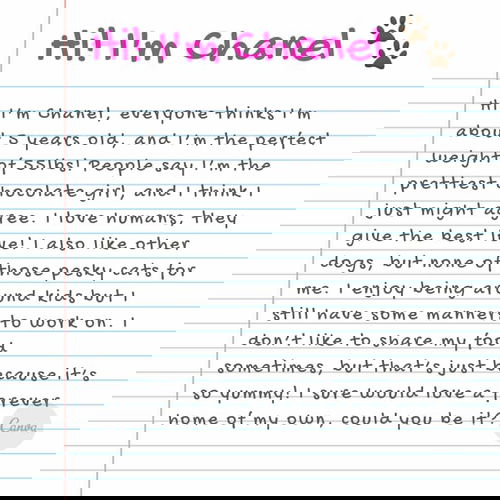 Hi! I'm Chanel
Hi I'm Chanel, everyone thinks I'm
about 5 years old, and I'm the perfect
weight of 55lbs! People say I'm the
prettiest chocolate girl, and I think I
just might agree. I love humans, they
give the best love! I also like other
dogs, but none of those pesky cats for
me. I enjoy being around kids but I
still have some manners to work on. I
don't like to share my food
sometimes, but that's just because it's
so yummy! I sure would love a forever
home of my own, could you be it?
Canva